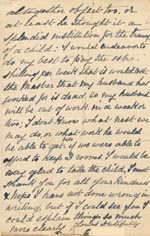 altogether object too. or
at least he thought it a
splendid institution for the training
of a child. I would endeavour to
do my best to pay the
shillings per week that is needed.
the Master that my husband has
worked for is dead so my husband
will be out of work in a week or
two. I dont know what next we
may do or what work he would
be able to get. if we were able to
afford to keep 2 rooms I would be
very glad to take the child, I must
thank you for all your kindness
& hope I have not done wrong in
writing, but if I could see you I
could explain things so much
more clearly